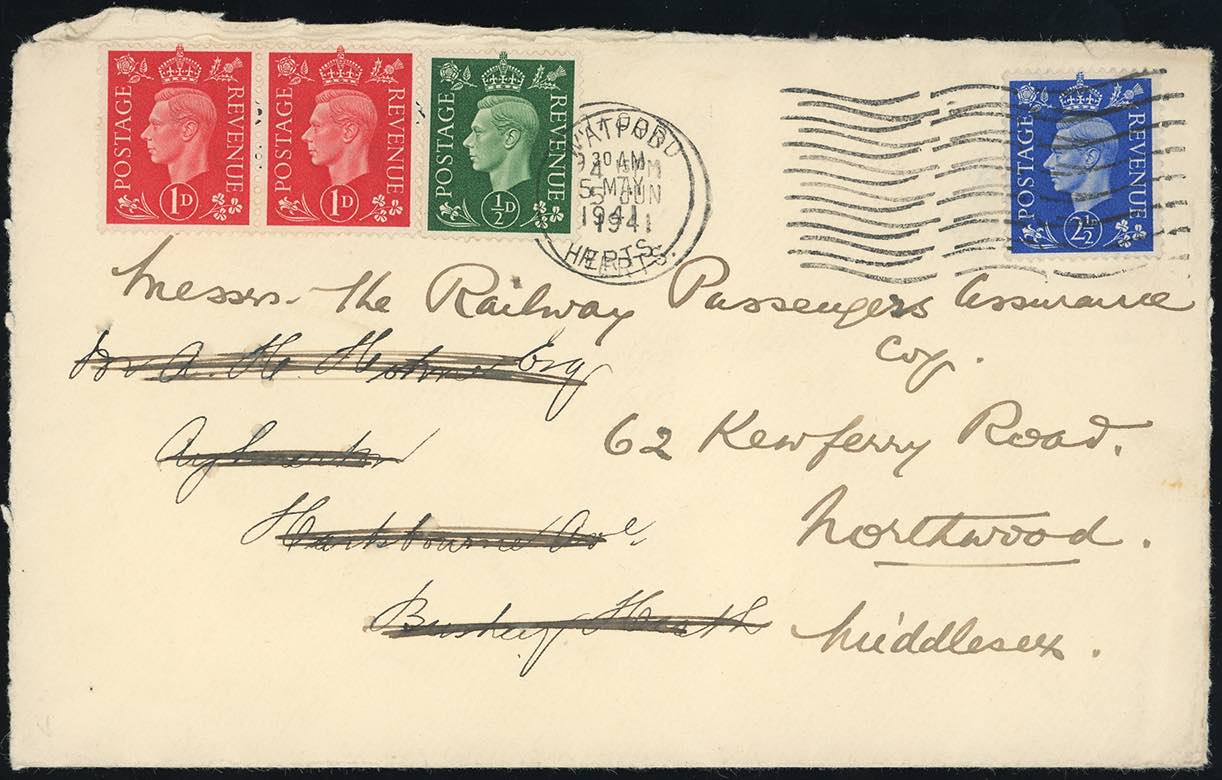 POSTAGE REVENUE 1D
POSTAGE REVENUE 1D
POSTAGE REVENUE ½D
POSTAGE REVENUE 2½D
WATFORD
30 AM
5 MAY
5 JUN
1941
1941
HERTS.
Messrs. The Railway Passengers Assurance
Coy.
A. H. Esq
62 Kewferry Road.
Hartsbourne Ave.
Northwood.
Bushey Heath
Middlesex.